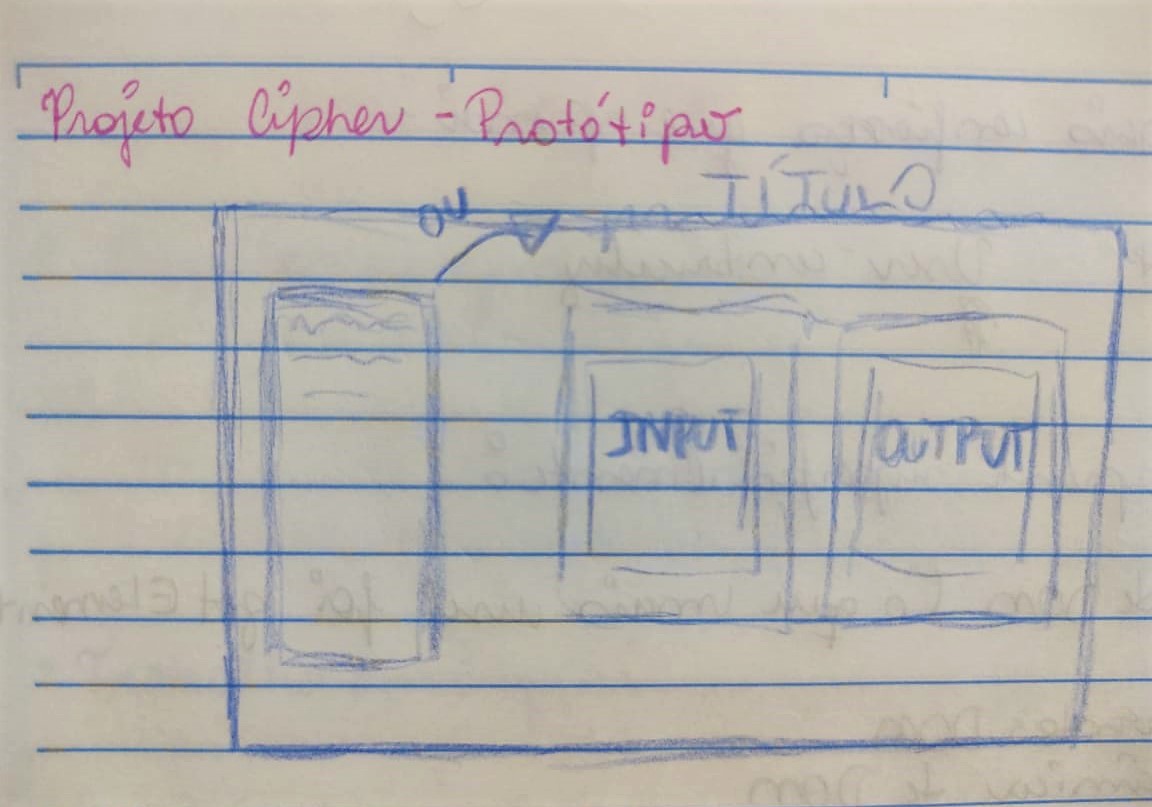 Projeto Cipher - Protótipo
TÍTULO
OU
INPUT
OUTPUT